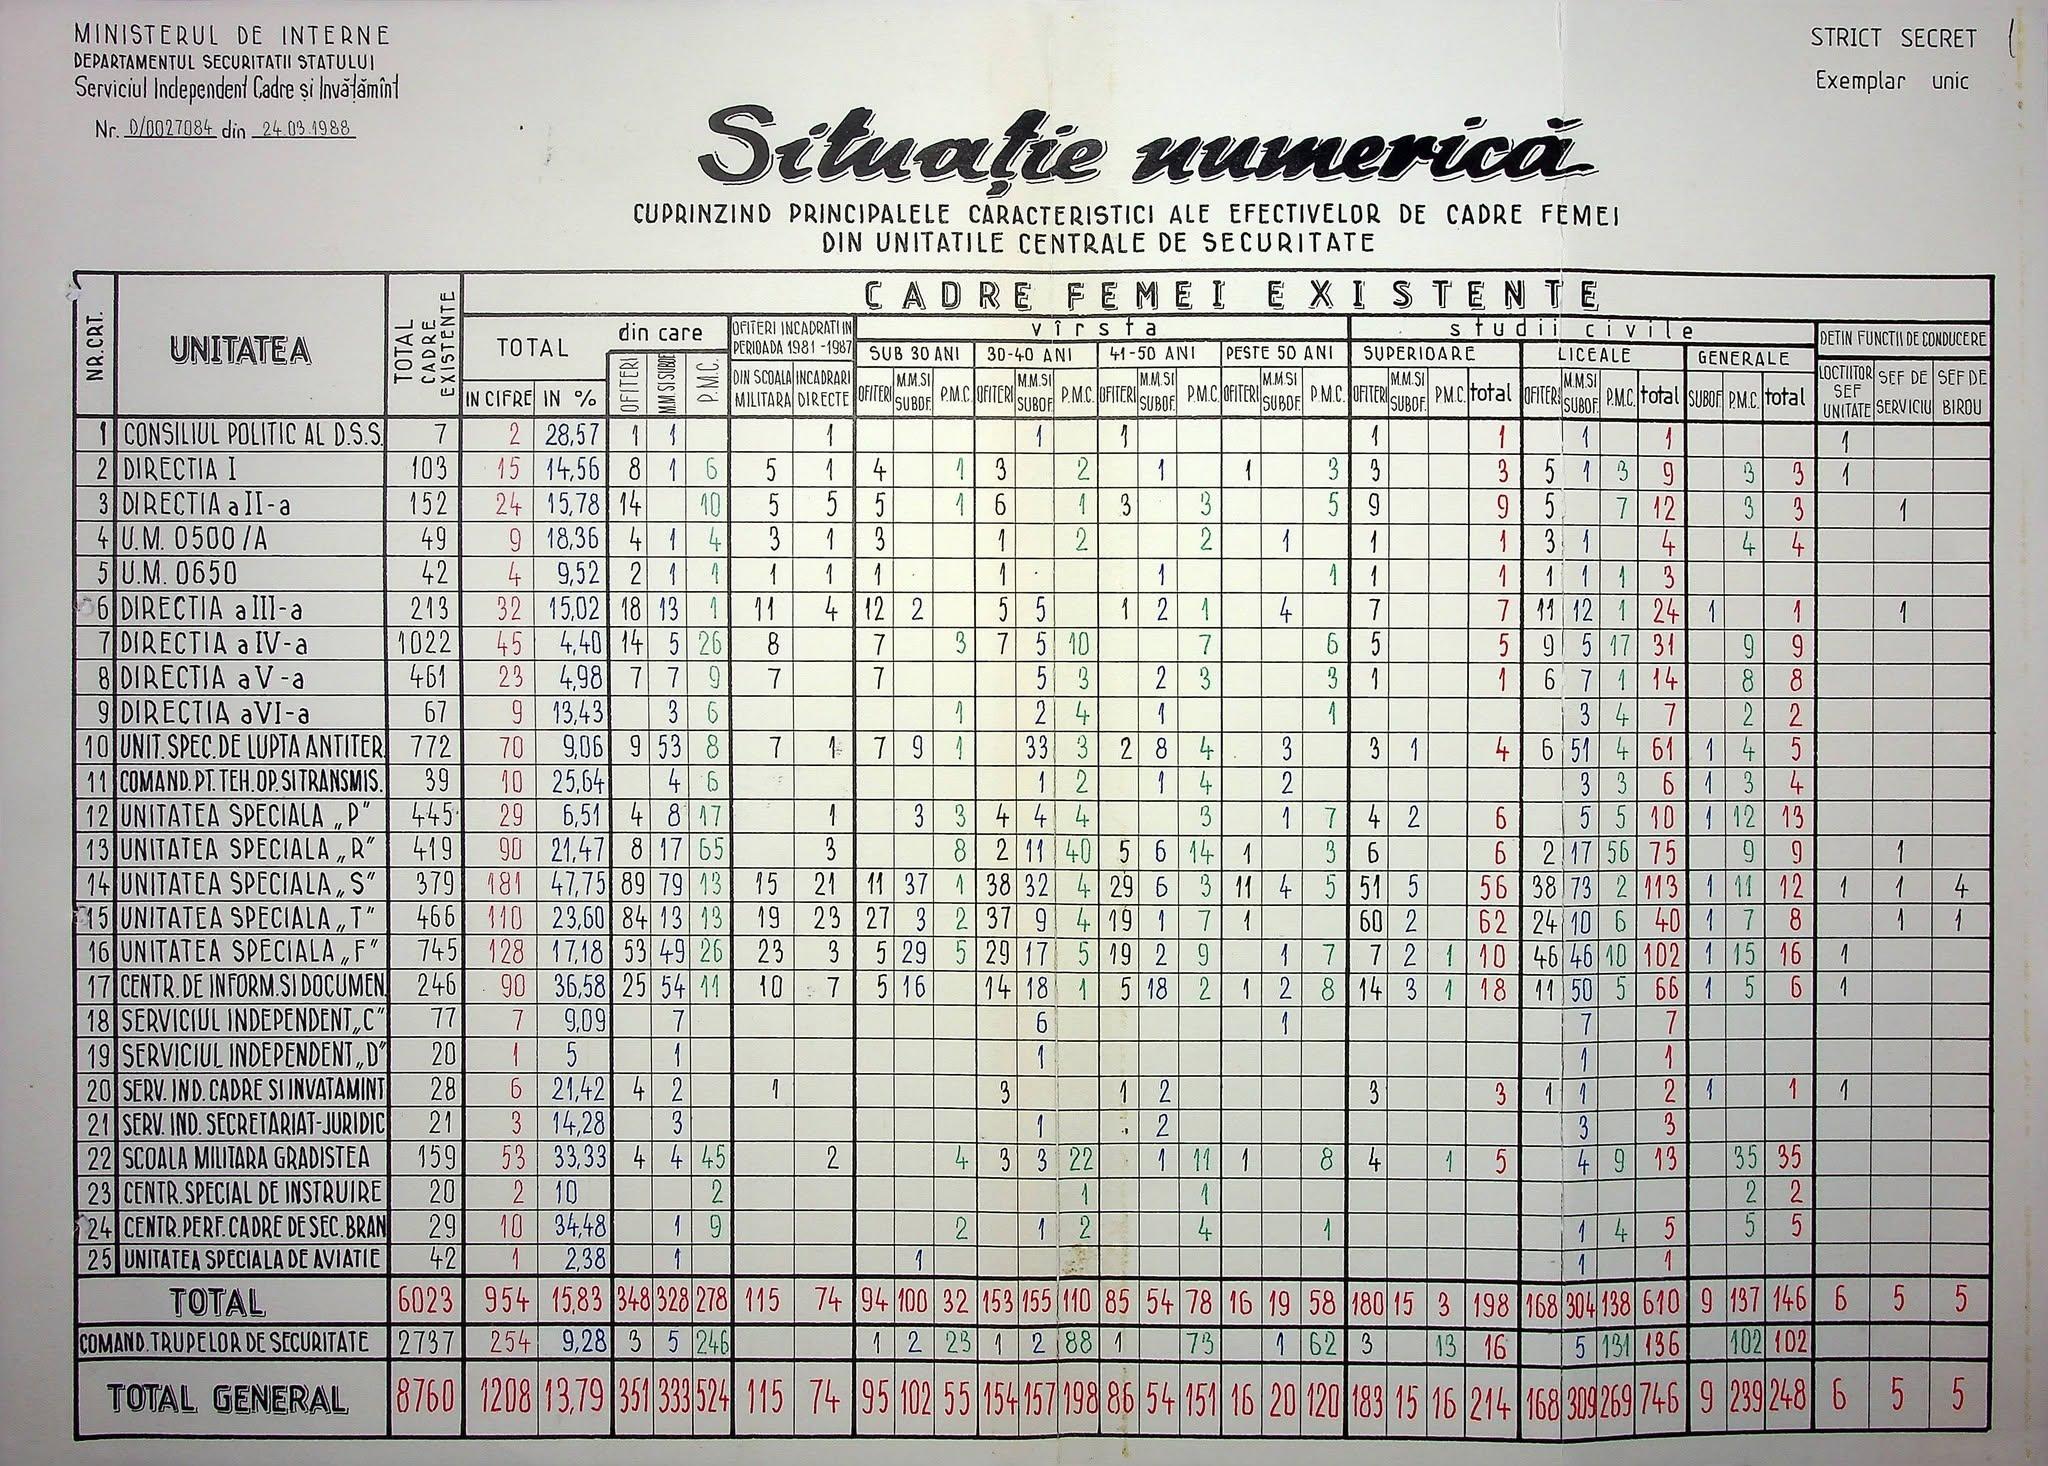 MINISTERUL DE INTERNE
DEPARTAMENTUL SECURITATII STATULUI
Serviciul Independent Cadre și Invățămînt
Nr. D/0027084 din 24.03.1988
STRICT SECRET
Exemplar unic
Situație numerică
CUPRINZIND PRINCIPALELE CARACTERISTICI ALE EFECTIVELOR DE CADRE FEMEI
DIN UNITATILE CENTRALE DE SECURITATE
NR.CRT. UNITATEA TOTAL CADRE EXISTENTE CADRE FEMEI EXISTENTE
TOTAL din care OFITERI INCADRATI IN PERIOADA 1981-1987 vîrsta studii civile DETIN FUNCTII DE CONDUCERE
SUB 30 ANI 30-40 ANI 41-50 ANI PESTE 50 ANI SUPERIOARE LICEALE GENERALE
IN CIFRE IN % OFITERI M.M.SI SUBOF P.M.C. DIN SCOALA MILITARA INCADRARI DIRECTE OFITERI M.M.SI SUBOF. P.M.C. OFITERI M.M.SI SUBOF. P.M.C. OFITERI M.M.SI SUBOF. P.M.C. OFITERI M.M.SI SUBOF. P.M.C. OFITERI M.M.SI SUBOF. P.M.C. total OFITERI M.M.SI SUBOF. P.M.C. total SUBOF. P.M.C. total LOCTIITOR SEF UNITATE SEF DE SERVICIU SEF DE BIROU
1 CONSILIUL POLITIC AL D.S.S. 7 2 28,57 1 1 1 1 1 1 1 1 1 1
2 DIRECTIA I 103 15 14,56 8 1 6 5 1 4 1 3 2 1 1 3 3 3 5 1 3 9 3 3 1
3 DIRECTIA a II-a 152 24 15,78 14 10 5 5 5 1 6 1 3 3 5 9 9 5 7 12 3 3 1
4 U.M. 0500/A 49 9 18,36 4 1 4 3 1 3 1 2 2 1 1 1 3 1 4 4 4
5 U.M. 0650 42 4 9,52 2 1 1 1 1 1 1 1 1 1 1 1 1 1 3
6 DIRECTIA a III-a 213 32 15,02 18 13 1 11 4 12 2 5 5 1 2 1 4 7 7 11 12 1 24 1 1 1
7 DIRECTIA a IV-a 1022 45 4,40 14 5 26 8 7 3 7 5 10 7 6 5 5 9 5 17 31 9 9
8 DIRECTIA a V-a 461 23 4,98 7 7 9 7 7 5 3 2 3 3 1 1 6 7 1 14 8 8
9 DIRECTIA a VI-a 67 9 13,43 3 6 1 2 4 1 1 3 4 7 2 2
10 UNIT. SPEC. DE LUPTA ANTITER. 772 70 9,06 9 53 8 7 1 7 9 1 33 3 2 8 4 3 3 1 4 6 51 4 61 1 4 5
11 COMAND. PT. TEH. OP. SI TRANSMIS. 39 10 25,64 4 6 1 2 1 4 2 3 3 6 1 3 4
12 UNITATEA SPECIALA „P” 445 29 6,51 4 8 17 1 3 3 4 4 4 3 1 7 4 2 6 5 5 10 1 12 13
13 UNITATEA SPECIALA „R” 419 90 21,47 8 17 65 3 8 2 11 40 5 6 14 1 3 6 6 2 17 56 75 9 9 1
14 UNITATEA SPECIALA „S” 379 181 47,75 89 79 13 15 21 11 37 1 38 32 4 29 6 3 11 4 5 51 5 56 38 73 2 113 1 11 12 1 1 4
15 UNITATEA SPECIALA „T” 466 110 23,60 84 13 13 19 23 27 3 2 37 9 4 19 1 7 1 60 2 62 24 10 6 40 1 7 8 1 1
16 UNITATEA SPECIALA „F” 745 128 17,18 53 49 26 23 3 5 29 5 29 17 5 19 2 9 1 7 7 2 1 10 46 46 10 102 1 15 16 1
17 CENTR. DE INFORM. SI DOCUMEN. 246 90 36,58 25 54 11 10 7 5 16 14 18 1 5 18 2 1 2 8 14 3 1 18 11 50 5 66 1 5 6 1
18 SERVICIUL INDEPENDENT „C” 77 7 9,09 7 6 1 7 7
19 SERVICIUL INDEPENDENT „D” 20 1 5 1 1 1 1
20 SERV. IND. CADRE SI INVATAMINT 28 6 21,42 4 2 1 3 1 2 3 3 1 1 2 1 1 1
21 SERV. IND. SECRETARIAT-JURIDIC 21 3 14,28 3 1 2 3 3
22 SCOALA MILITARA GRADISTEA 159 53 33,33 4 4 45 2 4 3 3 22 1 11 1 8 4 1 5 4 9 13 35 35
23 CENTR. SPECIAL DE INSTRUIRE 20 2 10 2 1 1 2 2
24 CENTR. PERF. CADRE DE SEC. BRAN 29 10 34,48 1 9 2 1 2 4 1 1 4 5 5 5
25 UNITATEA SPECIALA DE AVIATIE 42 1 2,38 1 1 1 1
TOTAL 6023 954 15,83 348 328 278 115 74 94 100 32 153 155 110 85 54 78 16 19 58 180 15 3 198 168 304 138 610 9 137 146 6 5 5
COMAND. TRUPELOR DE SECURITATE 2737 254 9,28 3 5 246 1 2 23 1 2 88 1 73 1 62 3 13 16 5 131 136 102 102
TOTAL GENERAL 8760 1208 13,79 351 333 524 115 74 95 102 55 154 157 198 86 54 151 16 20 120 183 15 16 214 168 309 269 746 9 239 248 6 5 5